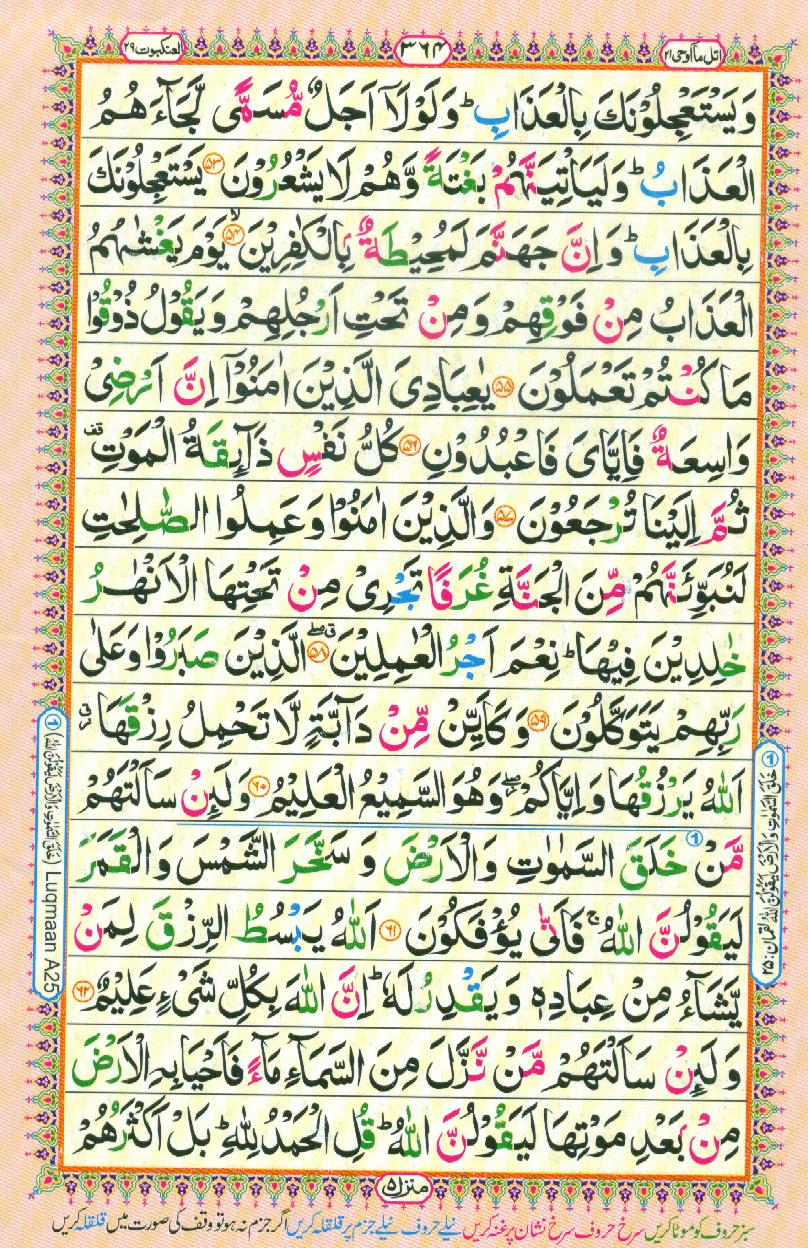 اتل ما اوحی ۲۱
۳۶۴
العنکبوت ۲۹
وَيَسْتَعْجِلُوْنَكَ بِالْعَذَابِ ؕ وَلَوْلَاۤ اَجَلٌ مُّسَمًّى لَّجَآءَهُمُ
الْعَذَابُ ؕ وَلَيَاْتِيَنَّهُمْ بَغْتَةً وَّهُمْ لَا يَشْعُرُوْنَ ۵۳ يَسْتَعْجِلُوْنَكَ
بِالْعَذَابِ ؕ وَاِنَّ جَهَنَّمَ لَمُحِيْطَةٌۢ بِالْكٰفِرِيْنَ ۙ ۵۴ يَوْمَ يَغْشٰىهُمُ
الْعَذَابُ مِنْ فَوْقِهِمْ وَمِنْ تَحْتِ اَرْجُلِهِمْ وَيَقُوْلُ ذُوْقُوْا
مَا كُنْتُمْ تَعْمَلُوْنَ ۵۵ يٰعِبَادِيَ الَّذِيْنَ اٰمَنُوْۤا اِنَّ اَرْضِيْ
وَاسِعَةٌ فَاِيَّايَ فَاعْبُدُوْنِ ۵۶ كُلُّ نَفْسٍ ذَآىِٕقَةُ الْمَوْتِ قف
ثُمَّ اِلَيْنَا تُرْجَعُوْنَ ۵۷ وَالَّذِيْنَ اٰمَنُوْا وَعَمِلُوا الصّٰلِحٰتِ
لَنُبَوِّئَنَّهُمْ مِّنَ الْجَنَّةِ غُرَفًا تَجْرِيْ مِنْ تَحْتِهَا الْاَنْهٰرُ
خٰلِدِيْنَ فِيْهَا ؕ نِعْمَ اَجْرُ الْعٰمِلِيْنَ ۵۸ الَّذِيْنَ صَبَرُوْا وَعَلٰى
رَبِّهِمْ يَتَوَكَّلُوْنَ ۵۹ وَكَاَيِّنْ مِّنْ دَآبَّةٍ لَّا تَحْمِلُ رِزْقَهَا
اَللّٰهُ يَرْزُقُهَا وَاِيَّاكُمْ وَهُوَ السَّمِيْعُ الْعَلِيْمُ ۶۰ وَلَىِٕنْ سَاَلْتَهُمْ
مَّنْ خَلَقَ السَّمٰوٰتِ وَالْاَرْضَ وَسَخَّرَ الشَّمْسَ وَالْقَمَرَ
لَيَقُوْلُنَّ اللّٰهُ ۚ فَاَنّٰى يُؤْفَكُوْنَ ۶۱ اَللّٰهُ يَبْسُطُ الرِّزْقَ لِمَنْ
يَّشَآءُ مِنْ عِبَادِهٖ وَيَقْدِرُ لَهٗ ؕ اِنَّ اللّٰهَ بِكُلِّ شَيْءٍ عَلِيْمٌ ۶۲
وَلَىِٕنْ سَاَلْتَهُمْ مَّنْ نَّزَّلَ مِنَ السَّمَآءِ مَآءً فَاَحْيَا بِهِ الْاَرْضَ
مِنْۢ بَعْدِ مَوْتِهَا لَيَقُوْلُنَّ اللّٰهُ ؕ قُلِ الْحَمْدُ لِلّٰهِ ؕ بَلْ اَكْثَرُهُمْ
① خَلَقَ السَّمٰوٰتِ وَالْاَرْضَ لَيَقُوْلُنَّ اللّٰهُ لقمان: ۲۵
① (خَلَقَ السَّمٰوٰتِ وَالْاَرْضَ لَيَقُوْلُنَّ اللّٰهُ) Luqmaan A25
منزل ۵
سبز حروف کو موٹا کریں سرخ حروف سرخ نشان پر غنہ کریں نیلے حروف نیلے جزم پر قلقلہ کریں اگر جزم نہ ہو تو وقف کی صورت میں قلقلہ کریں